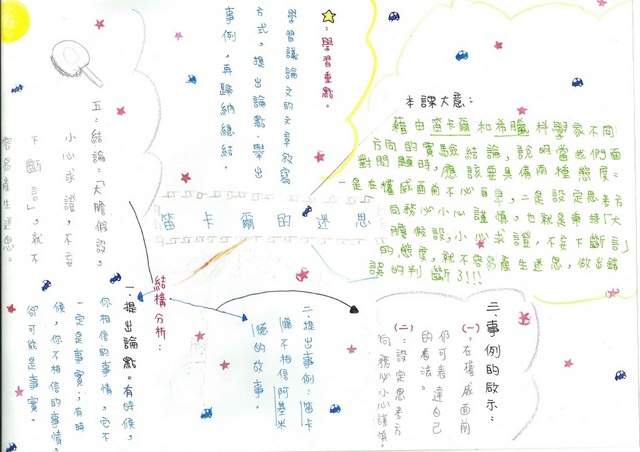 笛卡爾的迷思
☆:學習重點。
學習議論文的文章敘寫
方式,提出論點,舉出
事例,再歸納總結。
本課大意:
藉由笛卡爾和希臘科學家不同
方向的實驗結論,說明當我們面
對問題時,應該要具備兩種態度:
一是在權威面前不必自卑,二是設定思考方
向務必小心謹慎,也就是秉持「大
膽假設,小心求證,不妄下斷言」
的態度,就不容易產生迷思,做出錯
誤的判斷了!!!
結構分析:
一、提出論點。有時候,
你相信的事情,它不
一定是事實;有時
候,你不相信的事情,
卻可能是事實。
二、提出事例:笛卡
爾不相信阿基米
德的故事。
三、事例的啟示:
(一)、在權威面前
仍可表達自己
的看法。
(二):設定思考方
向務必小心謹慎。
五:結論:「大膽假設,
小心求證,不妄
下斷言」,就不
容易產生迷思。